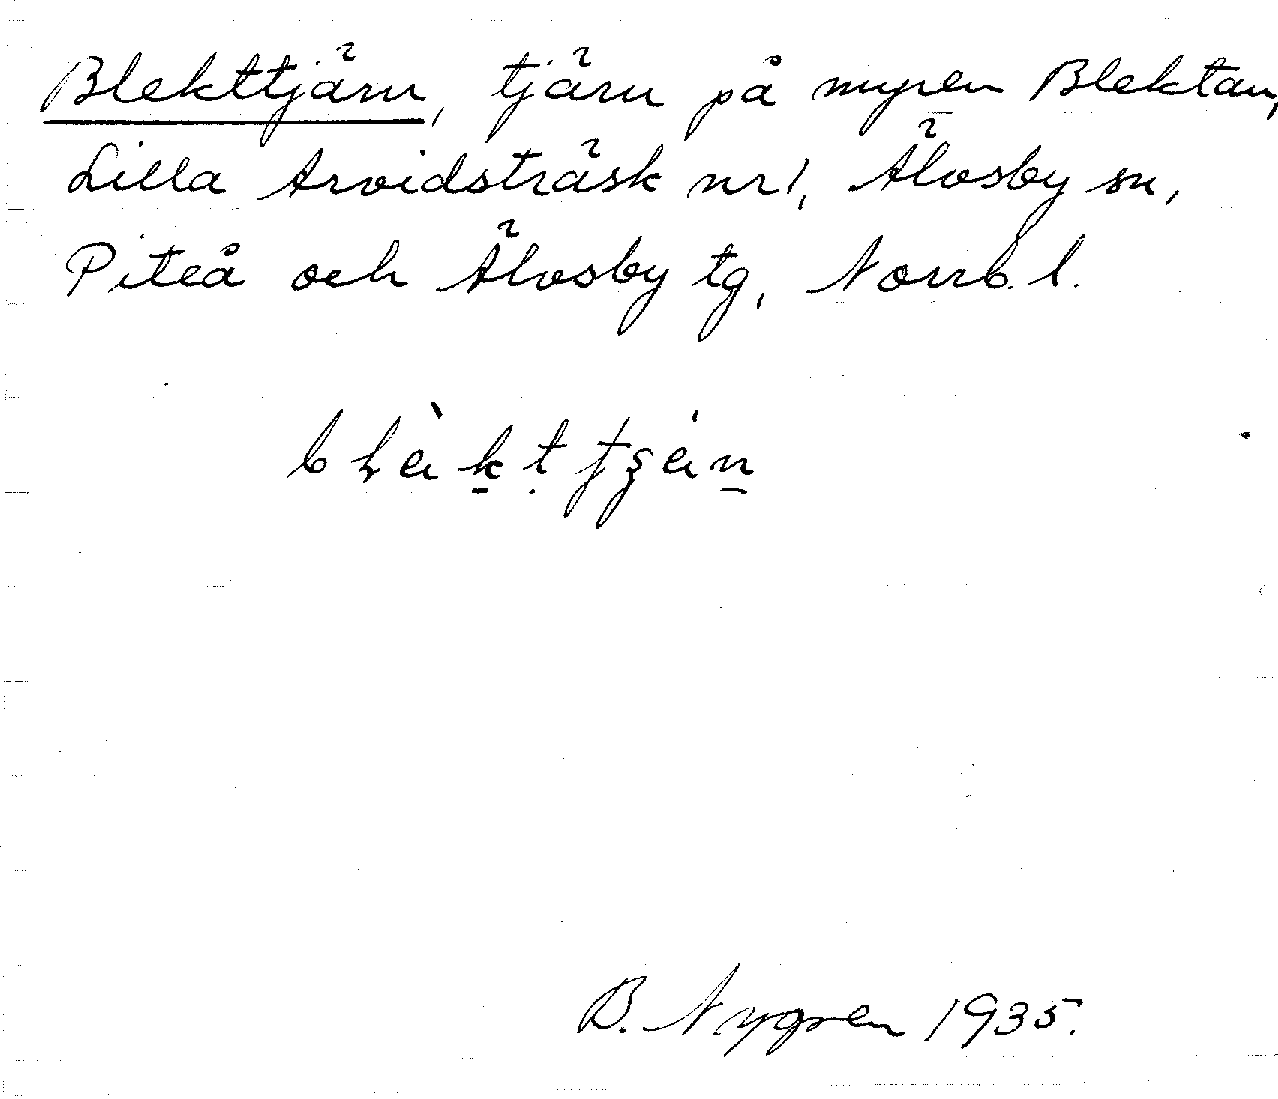 Blekttjärn, tjärn på myren Blektan,
Lilla Arvidsträsk nr 1, Älvsby sn,
Piteå och Älvsby tg, Norrb. l.
B. Nygren 1935.